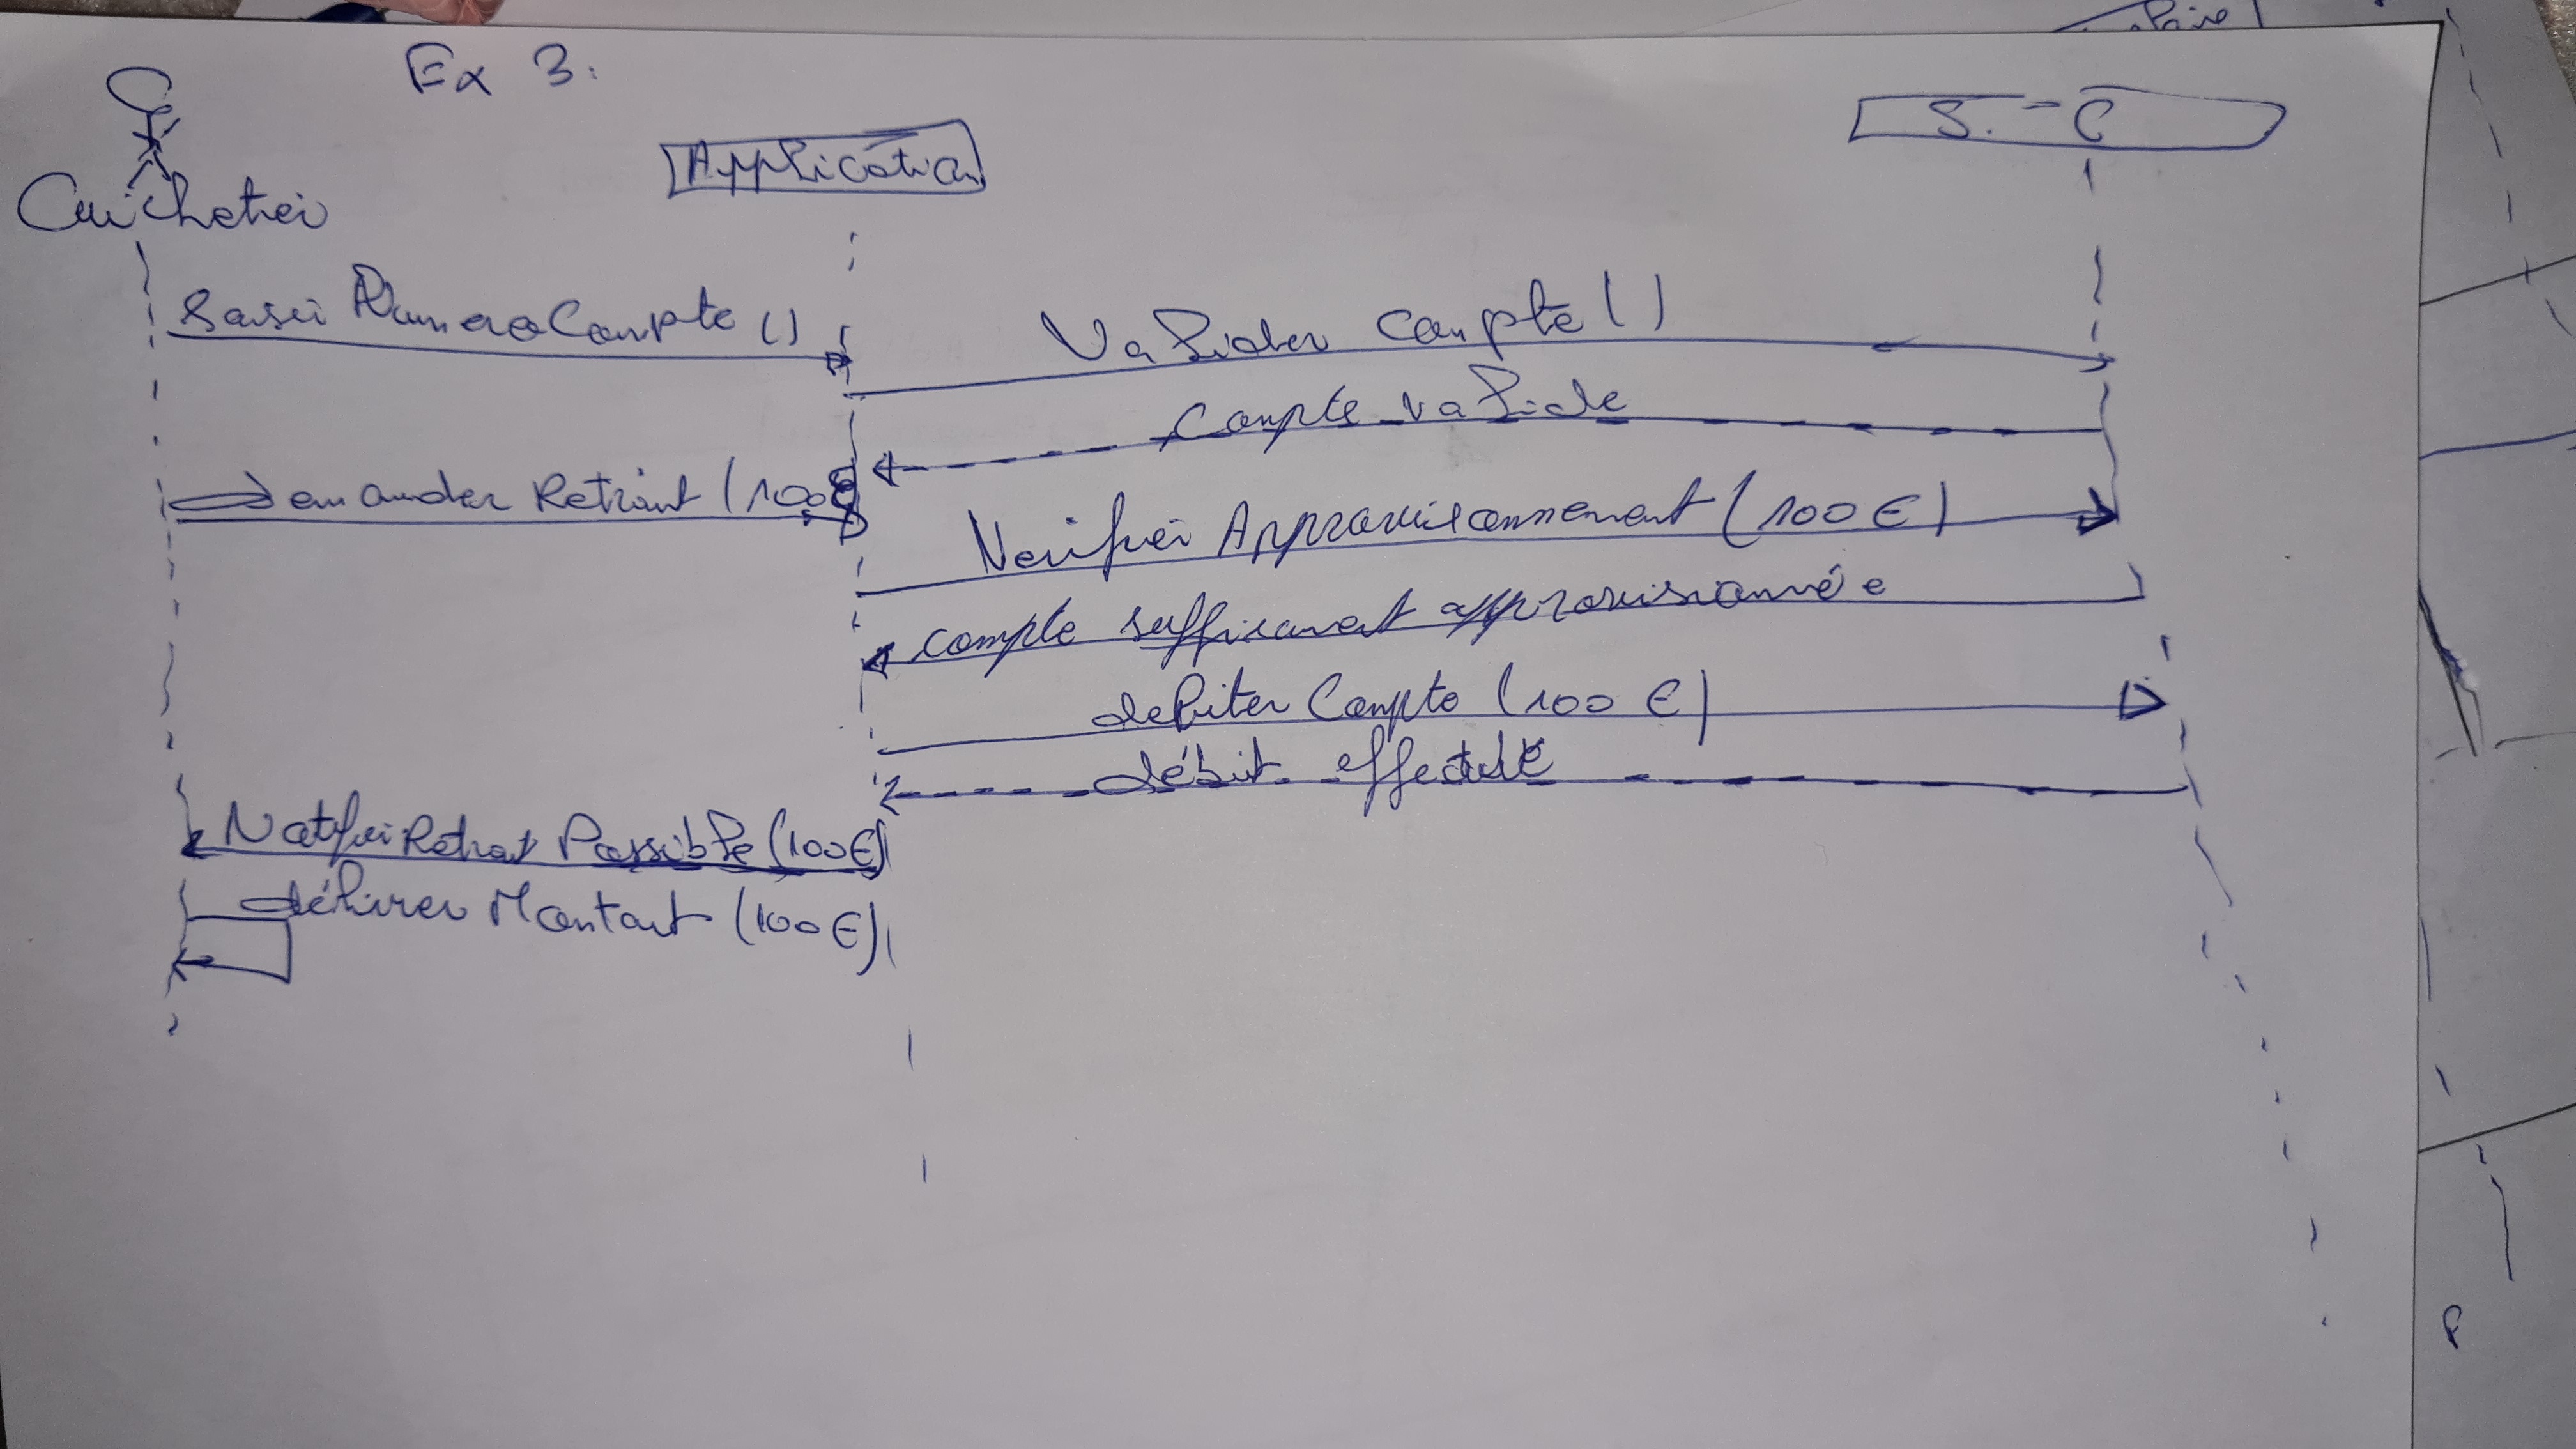 Ex 3.
Guichetier
Application
S.-C
Saisir Numero Compte ()
Valider Compte ()
Compte valide
demander Retrait (100€
Verifier Approvisionnement (100 €)
compte suffisament approvisionnée
debiter Compte (100 €)
débit effectué
Notifier Retrait Possible (100€)
délivrer Montant (100€)